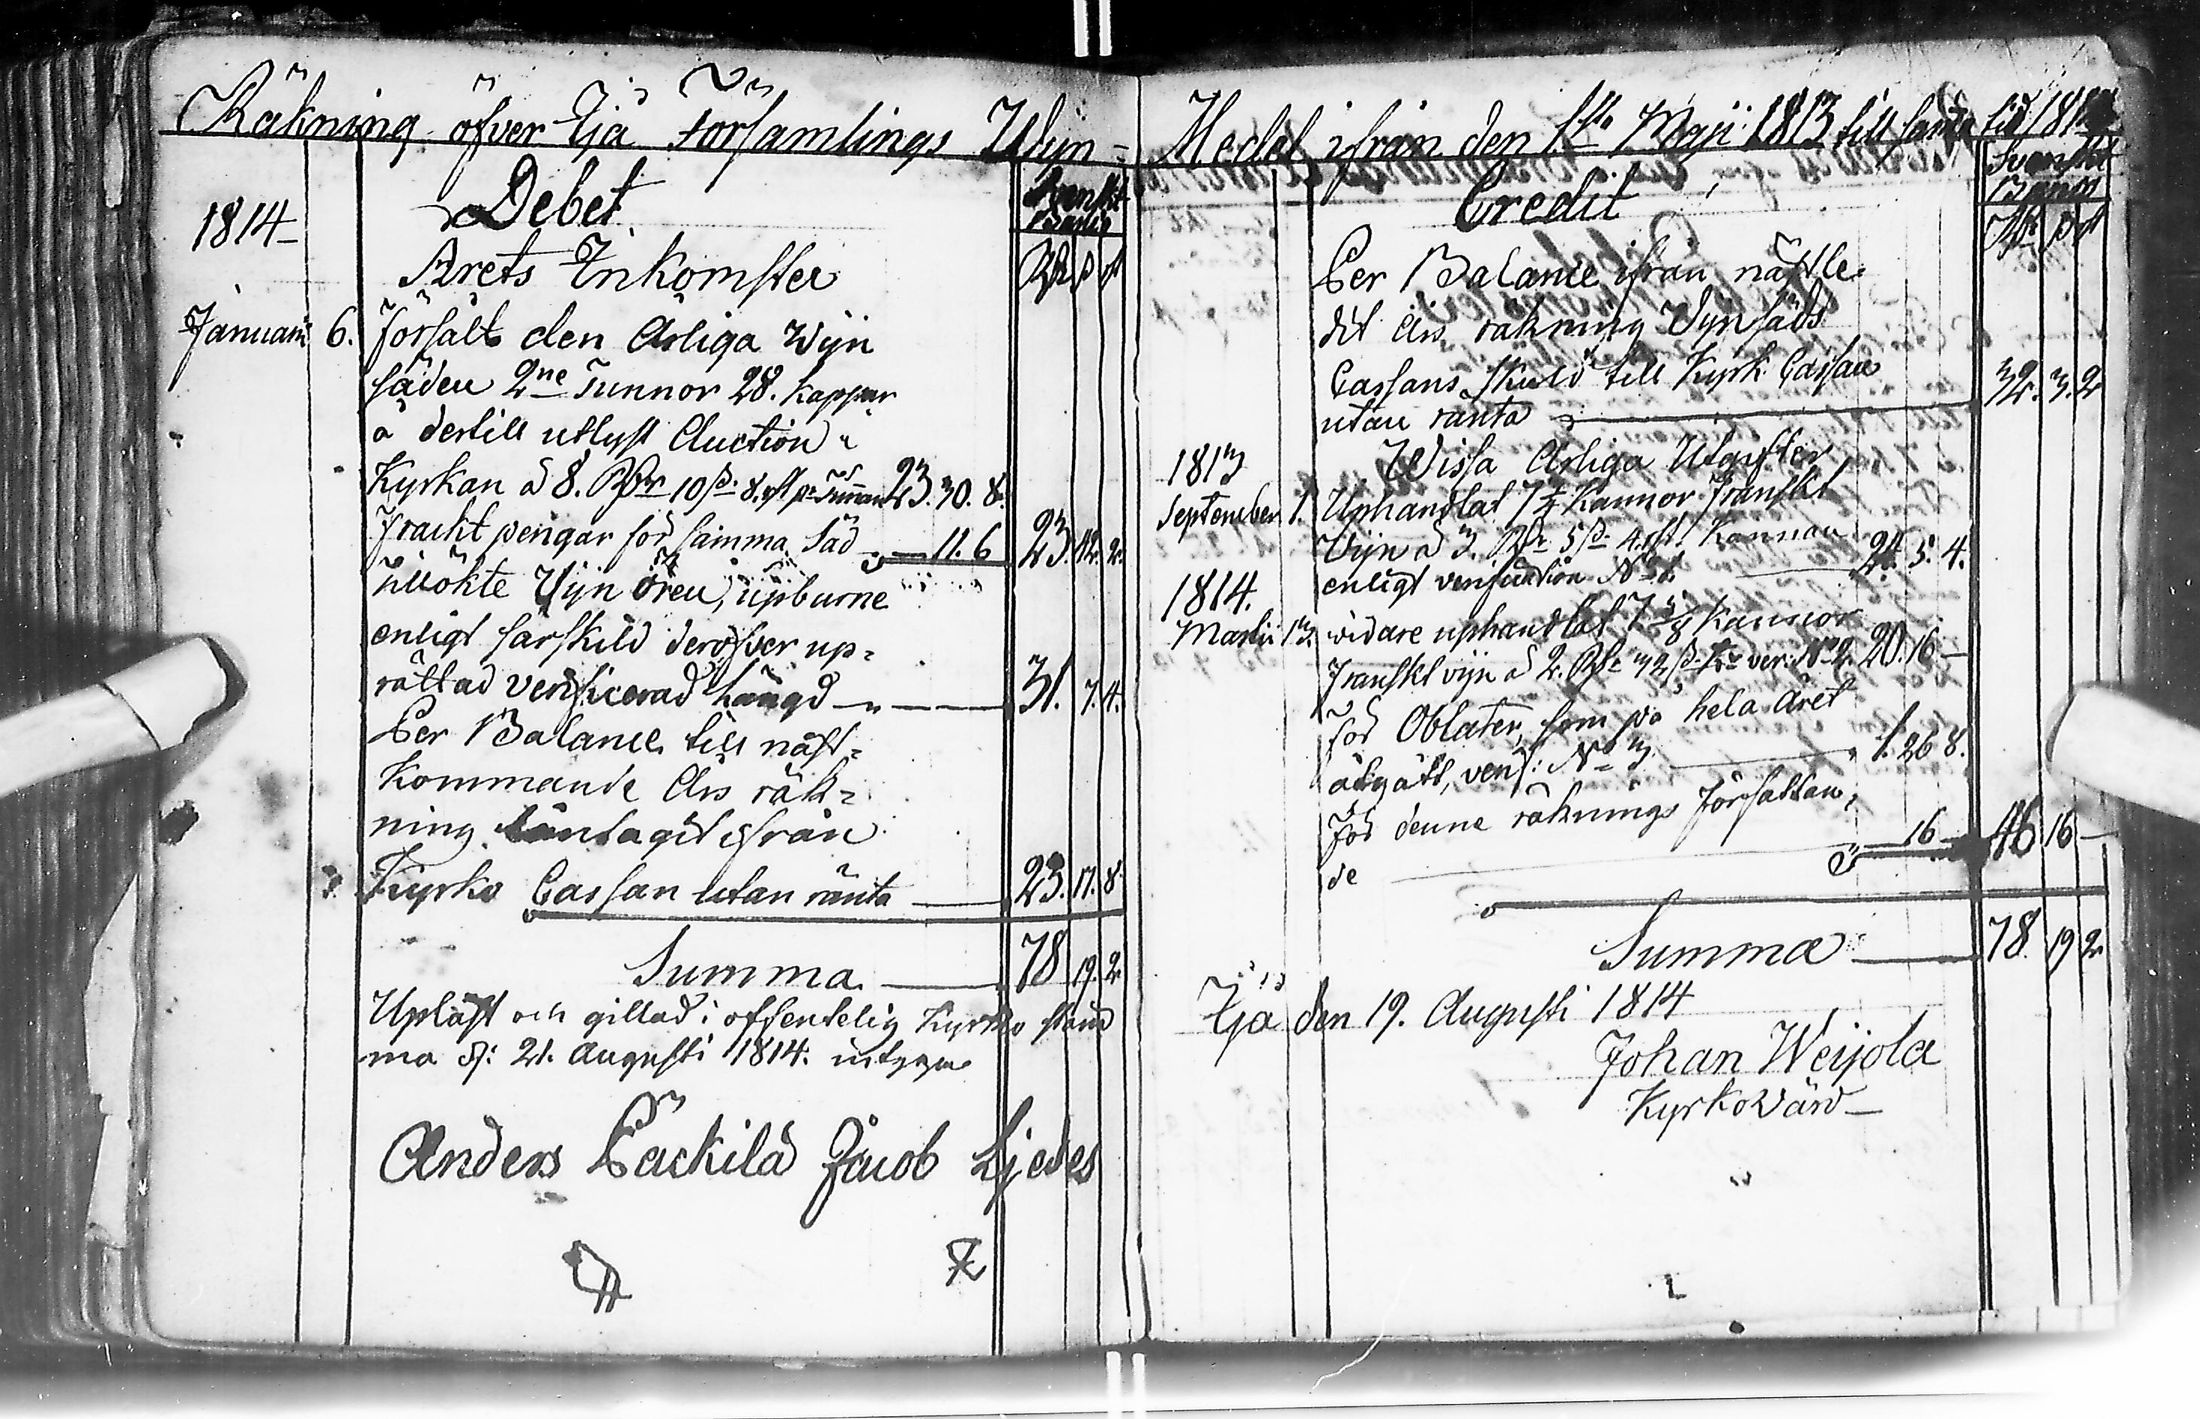 Räkning öfver Esse Församlings Wijn=
Debet
Svenskt
Banco
1814
Rd ß rst
Årets Inkomster
Januarii 6. Försålts den Årliga Wijn
säden 2ne Tunnor 28. kappar
å dertill utlyst Auction i
Kyrkan à 8. Rdr 10 ß. 8. rst pr Tunnan 23. 30. 8.
Frackt pengar för samma Säd 11. 6 23. 42. 2.
Enligt verificerad
Wijn ören, upburne
enligt särskild deröfver up=
rättad verificerad längd 31. 7. 4.
Per Balance till näst=
kommande Års räk=
ning låntagit ifrån
Kyrko Cassan utan ränta 23. 17. 8.
Summa 78 19. 2
Upläst och gillad i offentelig Kyrko stäm
ma d: 21. Augusti 1814. intyga
Anders Jacob
Medel ifrån den 1sta Maji 1813 till samma tid 1814
Credit
Svenskt
Banco
Rd ß rst
Per Balance ifrån nästle=
dit års räkning Wijnsäds
Cassans skuld till Kyrk Cassan
utan ränta 32. 3. 2
1813 Wissa Årliga Utgifter
September 1. Uphandlat 7 ½ Kannor Franskt
Vijn à 3. Rdr 5 ß. 4. rst. Kannan
enligt verification No 1. 24. 5. 4.
1814.
Martii 13. vidare uphandlat 7 5/8 Kannor
Franskt vijn à 2. Rdr 32 ß. Kn ver: No 2. 20. 16 —
För Oblater, som på hela året
åtgått, verif: No 3. 1. 26 8.
För denne räknings författan=
de 16 — 46 16 —
Summa 78. 19 2
den 19. Augusti 1814
Johan Weijola
Kyrkovärd